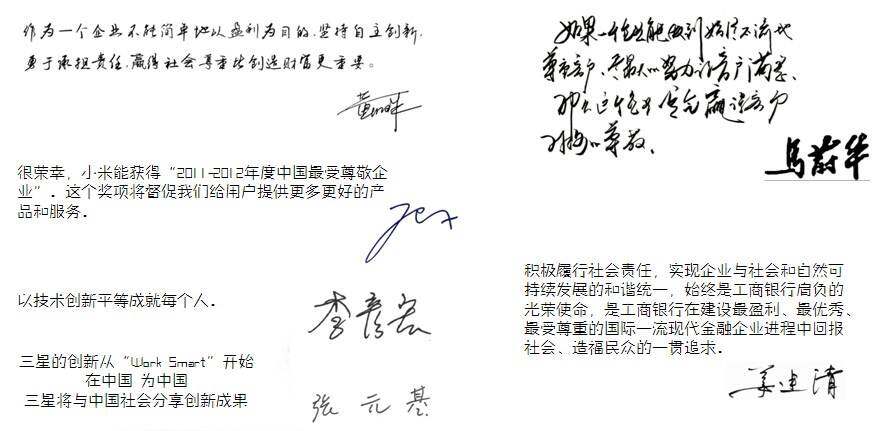 作为一个企业不能简单地以盈利为目的,坚持自主创新,
勇于承担责任,赢得社会尊重比创造财富更重要。
很荣幸，小米能获得“2011-2012年度中国最受尊敬企
业”．这个奖项将督促我们给用户提供更多更好的产
品和服务．
以技术创新平等成就每个人．
李彦宏
三星的创新从“Work Smart”开始
在中国 为中国
三星将与中国社会分享创新成果
张元基
如果一个企业能做到始终不渝地
尊重客户、尽最大的努力让客户满意、
那么这个企业一定会赢得客户
对你的尊敬、
马蔚华
积极履行社会责任，实现企业与社会和自然可
持续发展的和谐统一，始终是工商银行肩负的
光荣使命，是工商银行在建设最盈利、最优秀、
最受尊重的国际一流现代金融企业进程中回报
社会、造福民众的一贯追求．
姜建清